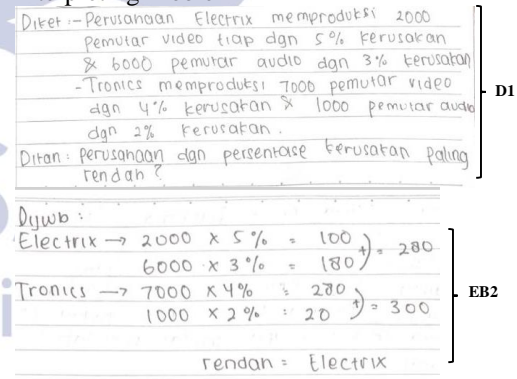 Diket :- Perusahaan Electrix memproduksi 2000
pemutar video tiap dgn 5% kerusakan
& 6000 pemutar audio dgn 3% kerusakan
- Tronics memproduksi 7000 pemutar video
dgn 4% kerusakan & 1000 pemutar audio
dgn 2% kerusakan.
Ditan : Perusahaan dgn persentase kerusakan paling
rendah ?
D1
Dijwb :
Electrix → 2000 × 5% = 100
6000 × 3% = 180 +) = 280
Tronics → 7000 × 4% = 280
1000 × 2% = 20 +) = 300
rendah = Electrix
EB2